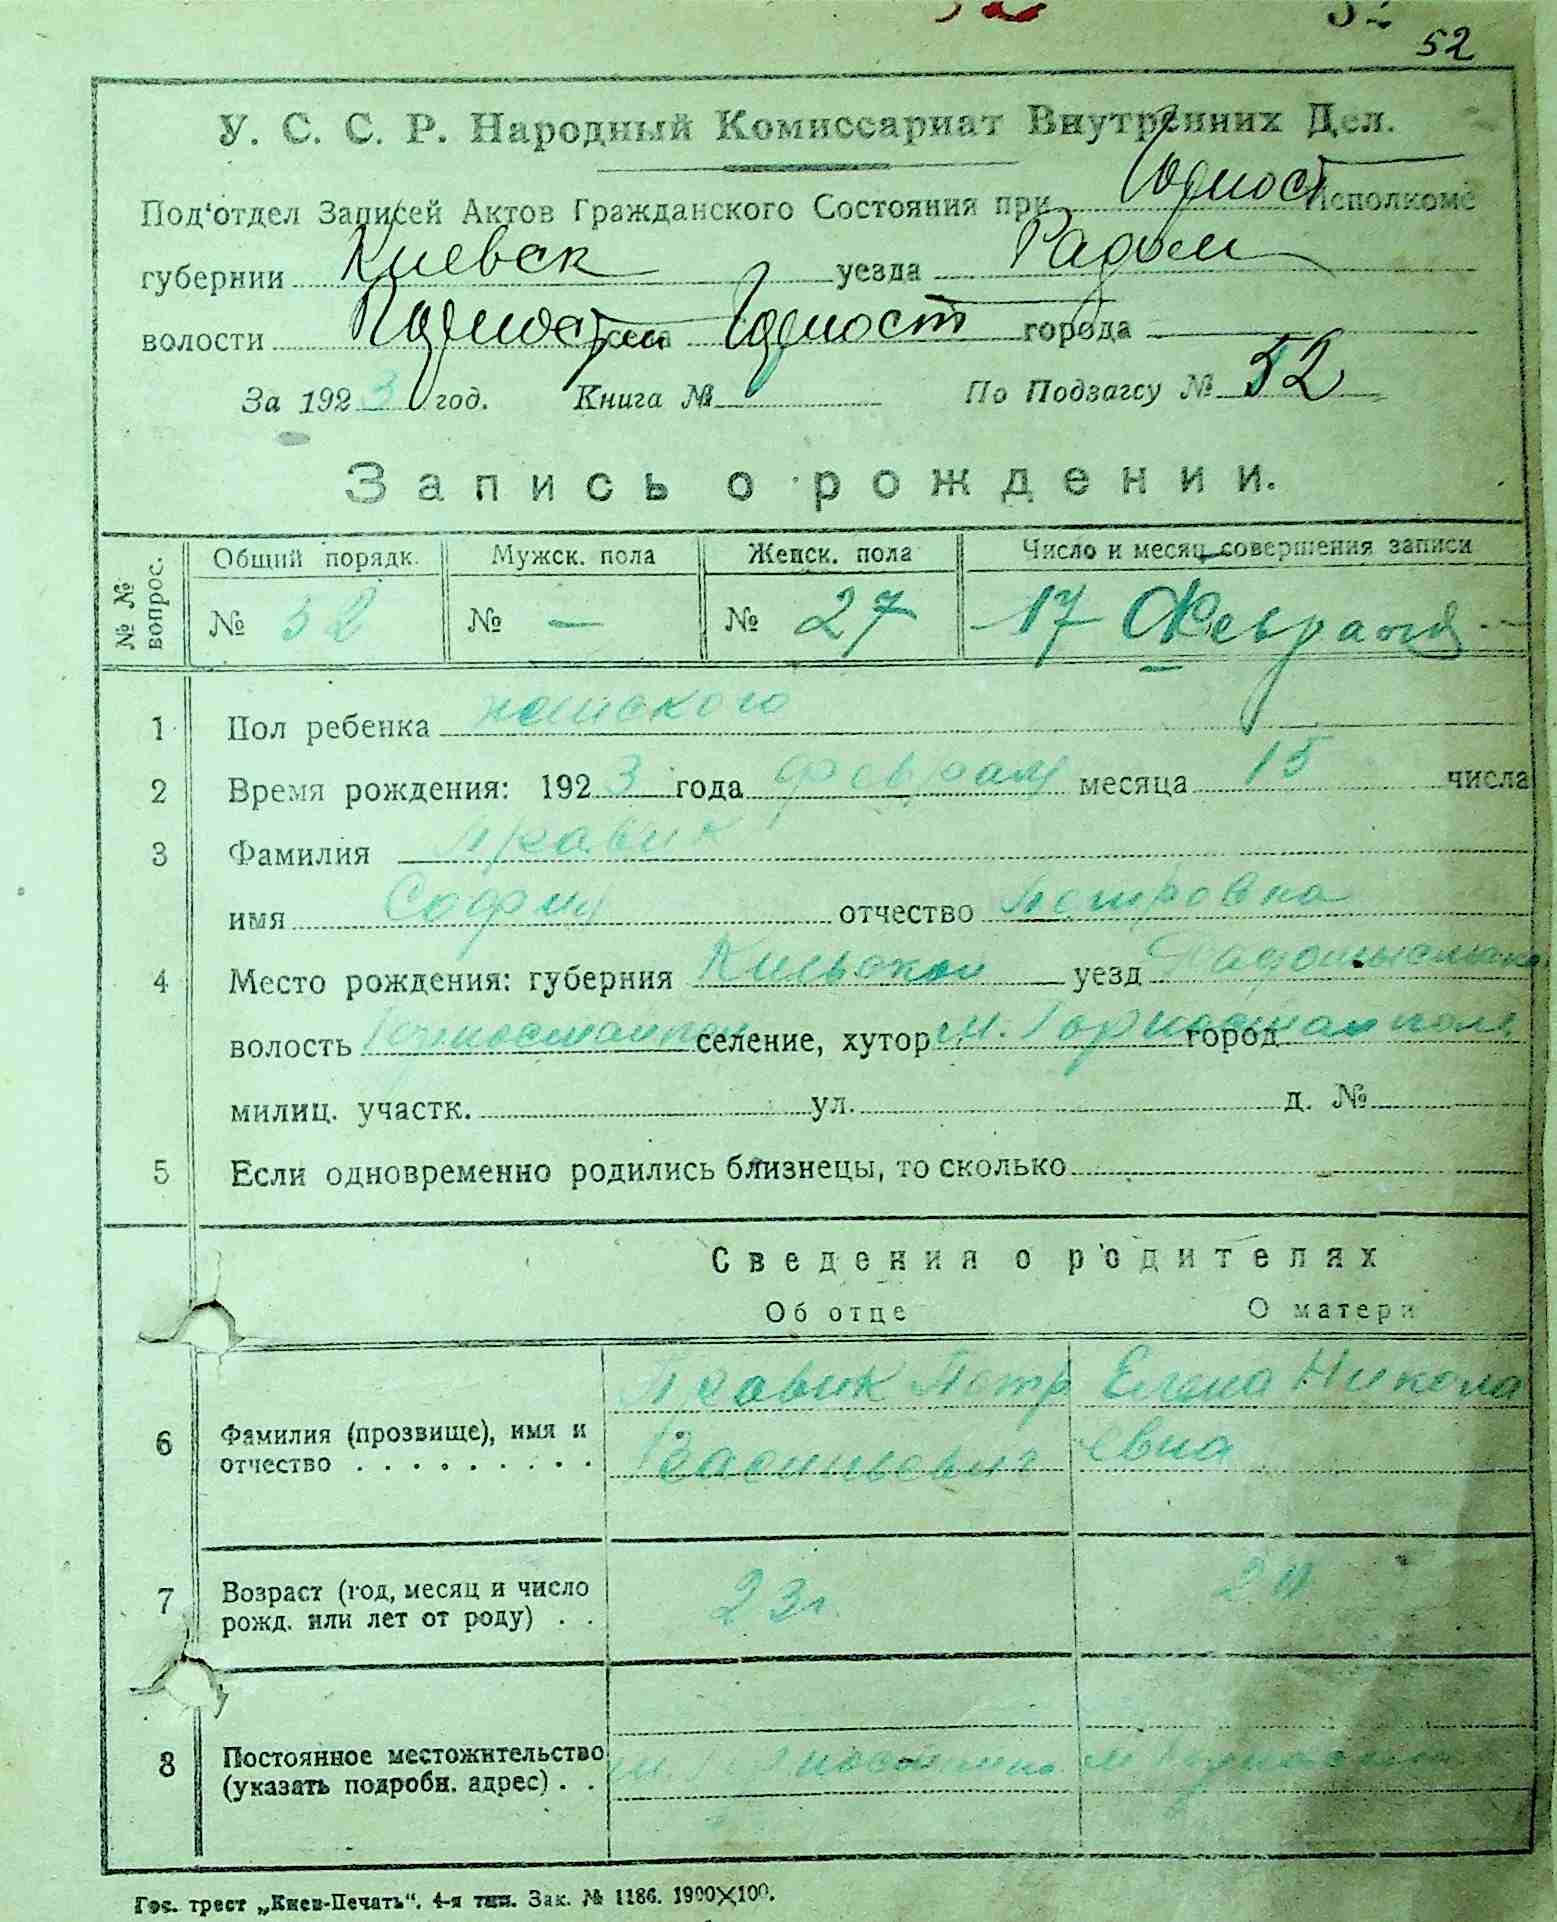 52
У. С. С. Р. Народный Комиссариат Внутренних Дел.
Под'отдел Записей Актов Гражданского Состояния при Горност Исполкоме
губернии Киевск уезда Радом
волости Горност села Горност города
За 1923 год. Книга № По Подзагсу № 52
Запись о рождении.
№ № вопрос. Общий порядк. Мужск. пола Женск. пола Число и месяц совершения записи
№ 52 № — № 27 17 Февраля
1 Пол ребенка женского
2 Время рождения: 1923 года февраля месяца 15 числа
3 Фамилия Правик
имя София отчество Петровна
4 Место рождения: губерния Киевской уезд Радомысльск
волость Горностайпол селение, хутор м. Горностайполь город
милиц. участк. ул. д. №
5 Если одновременно родились близнецы, то сколько
Сведения о родителях
Об отце О матери
6 Фамилия (прозвище), имя и отчество Правик Петр Васильевич Елена Николаевна
7 Возраст (год, месяц и число рожд. или лет от роду) 23 г.
8 Постоянное местожительство (указать подробн. адрес)
Гос. трест „Киев-Печать". 4-я тип. Зак. № 1186. 1900×100.